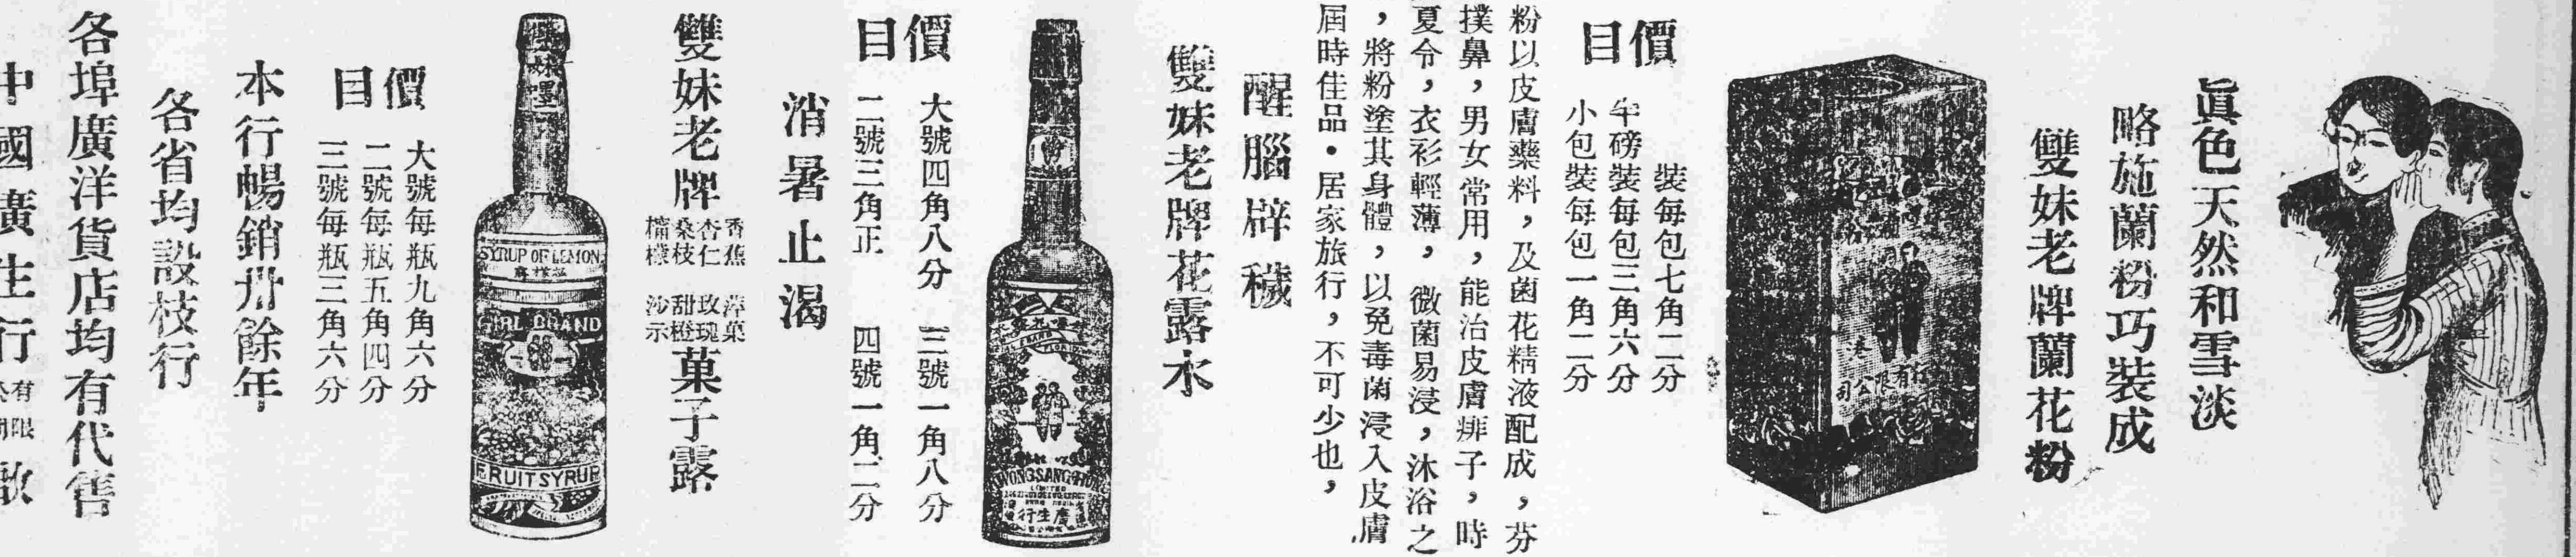 眞色天然和雪淡
略施蘭粉巧裝成
雙妹老牌蘭花粉
價目
裝每包七角二分
半磅裝每包三角六分
小包裝每包一角二分
粉以皮膚藥料，及菌花精液配成，芬
撲鼻，男女常用，能治皮膚痱子，時
夏令，衣衫輕薄，微菌易浸，沐浴之
，將粉塗其身體，以免毒菌浸入皮膚
屆時佳品・居家旅行，不可少也，
醒腦辟穢
雙妹老牌花露水
KWONGSANGHONG
LIMITED
廣生行
價目
大號四角八分 三號一角八分
二號三角正 四號一角二分
消暑止渴
雙妹老牌
香蕉 萍菓
杏仁 玫瑰
桑枝 甜橙
檸檬 沙示
菓子露
SYRUP OF LEMON
GIRL BRAND
FRUIT SYRUP
價目
大號每瓶九角六分
二號每瓶五角四分
三號每瓶三角六分
本行暢銷卅餘年
各省均設枝行
各埠廣洋貨店均有代售
中國廣生行有限